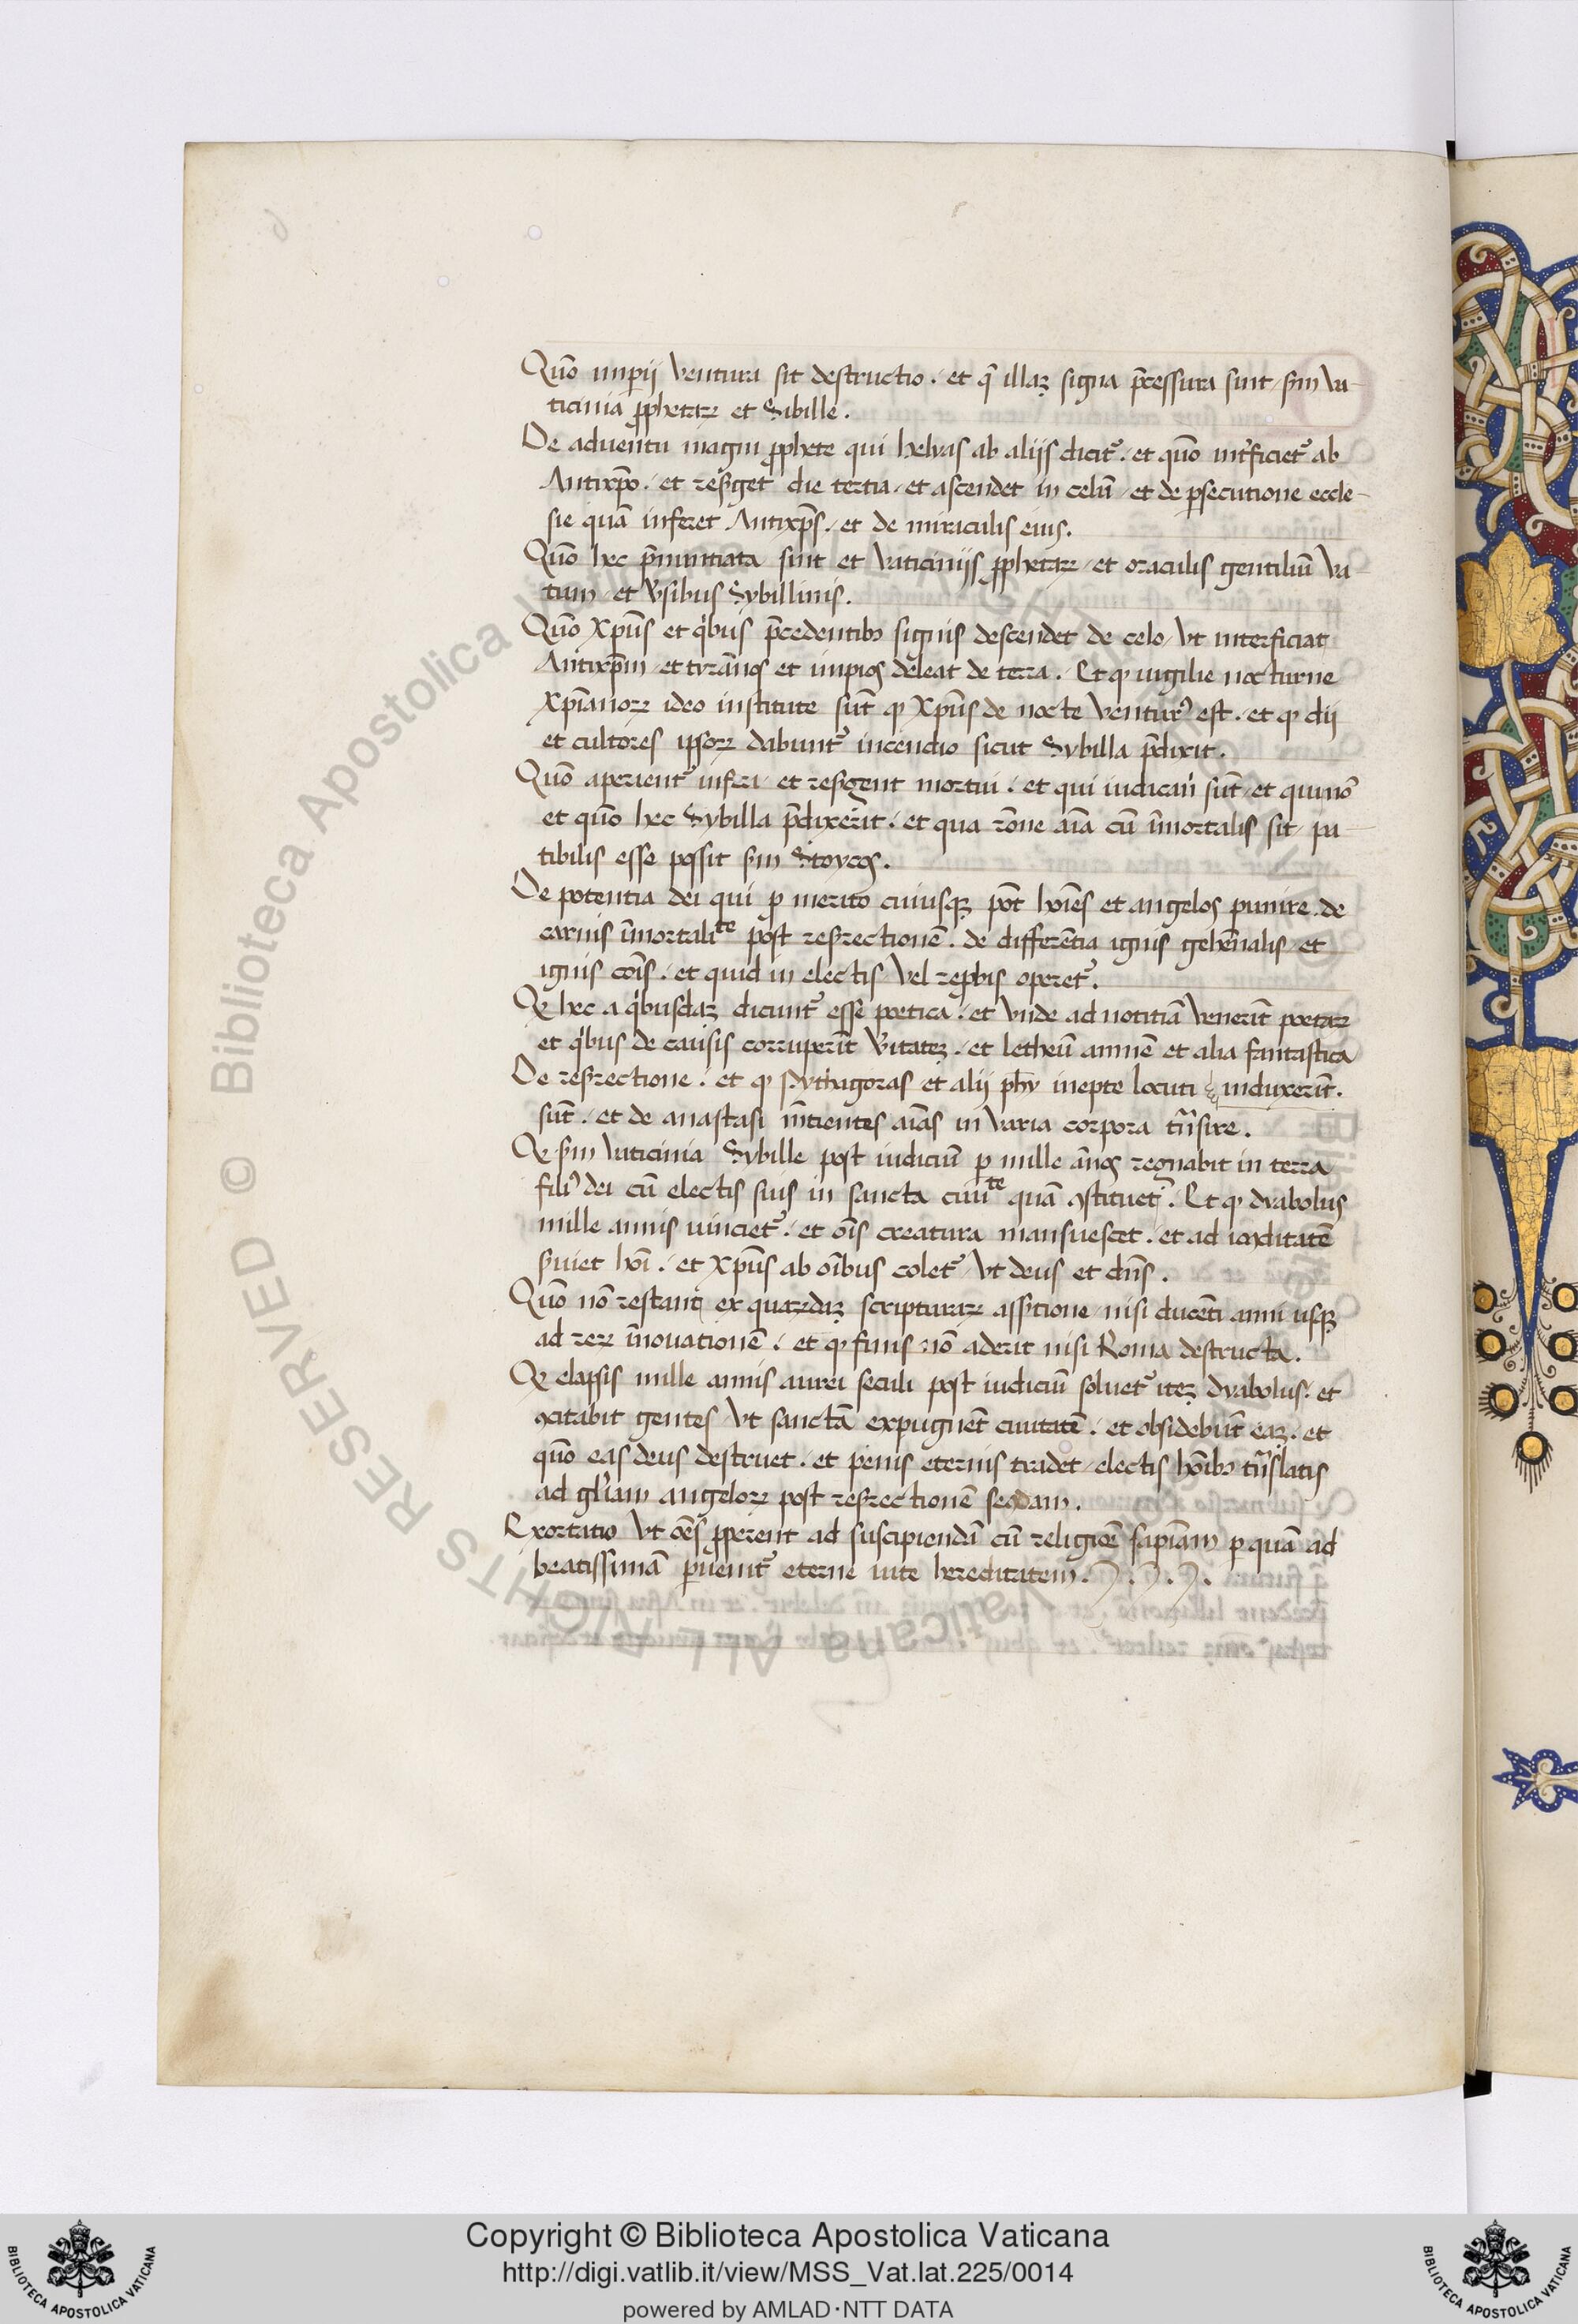 Quō imperii Ventura sit destructio . et q̄ illaꝝ signa p̄cessura sint / scḋm Va
ticinia ꝓphetaꝝ et Sibille .
De adventu magni ꝓphete qui helyas ab aliis dicit᷑ . et quō int᷑ficiet᷑ ab
Antixp̄o . et resurget die tertia / et ascendet in celū / et de ꝑsecutione eccle-
sie quā inferet Antixp̄s . et de miraculis eius .
Quō hec p̄nuntiata sint et Vaticiniis ꝓphetaꝝ / et oraculis gentiliū Va
tum / et v̓sibus Sybillinis .
Quō Xp̄us et qⁱbus p̄cedentibꝰ signis descendet de celo / Vt interficiat
Antixp̄m / et tyrānos et impios deleat de terra . Et ꝙ vigilie nocturne
Xp̄ianoꝝ ideo institute sūt ꝙ Xp̄us de nocte Venturꝰ est . et ꝙ dii
et cultores ipsoꝝ dabunt᷑ incendio sicut Sybilla p̄dixit .
Quō aperient᷑ inferi / et resurgent mortui . et qui iudicandi sūt / et qui nō
et quō hec Sybilla p̄dixerit . et qua rōne aīa cū īmortalis sit / pa-
tibilis esse possit scḋm Stoycos .
De potentia dei qui ꝓ merito cuiusqꝫ pōt hoīes et angelos punire . de
carnis īmortaliᵗᵉ post resurrectionē . de differētia ignis gehēnalis / et
ignis cōis . et quid in electis Vel reprobis operet᷑ .
Qꝙ hec a qⁱbusdaꝫ dicunt᷑ esse poetica . et Vnde ad notitiā Venerīt poetaꝝ
et qⁱbus de causis corruperīt v̓itateꝫ . et letheū amnē et alia fantastica
De resurrectione . et ꝙ Pythagoras et alii phy inepte locuti induxerīt .
sūt . et de anastasi mētientes aīas in Varia corpora trāsire .
Qꝙ scḋm Vaticinia Sybille post iudiciū ꝑ mille ānos regnabit in terra
filiꝰ dei cū electis suis in sancta ciuiᵗᵉ quā ꝯstituet . Et ꝙ dyabolus
mille annis vinciet᷑ . et oīs creatura mansuescet . et ad iocūditatē
seruiet hoī . et Xp̄us ab oībus colet᷑ / Vt deus et dn̄s .
Quō nō restant ex quarūdaꝫ scripturaꝝ assertione / nisi ducēti anni usqꝫ
ad reꝝ īnovationē . et ꝙ finis nō aderit nisi Roma destructa .
Qꝙ elapsis mille annis aurei seculi post iudiciū soluet᷑ iteꝝ dyabolus . et
ꝯcitabit gentes / Vt sanctā expugnēt ciuitatē . et obsidebūt eaꝫ . et
quō eas deus destruet . et penis eternis tradet / electis hoībꝰ trāslatis
ad gl̄iam angeloꝝ post resurrectionē secūdam .
Exortatio Vt oēs ꝓperent ad suscipiendā cū religiōe sapīam ꝑ quā ad
beatissimā ꝑuenit᷑ eterne vite hereditatem .
© Biblioteca Apostolica Vaticana
ALL RIGHTS RESERVED
Copyright © Biblioteca Apostolica Vaticana
http://digi.vatlib.it/view/MSS_Vat.lat.225/0014
powered by AMLAD·NTT DATA
BIBLIOTECA APOSTOLICA VATICANA
BIBLIOTECA APOSTOLICA VATICANA